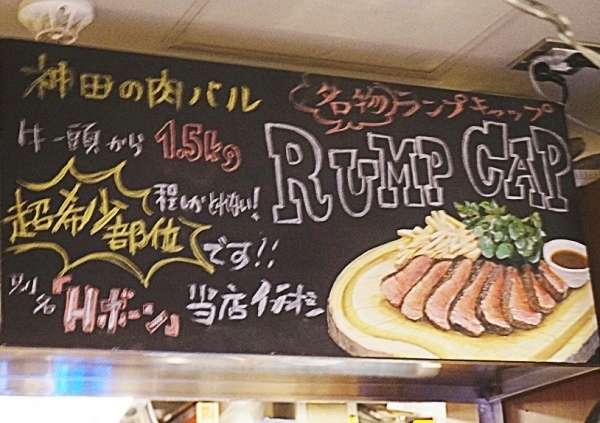 神田の肉バル
名物ランプキャップ
RUMP CAP
牛一頭から1.5kg
程しかとれない!
超希少部位です!!
別名『Hボーン』
当店イチオシ